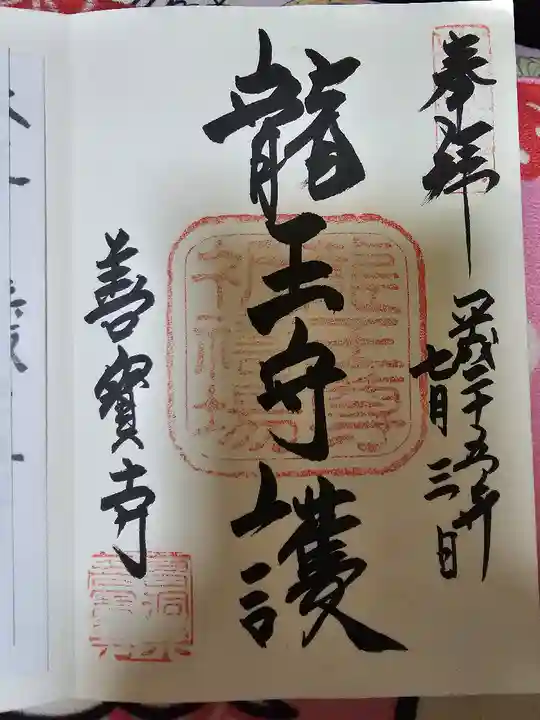 奉拝
平成二十五年
七月三日
龍王守護
善寳寺